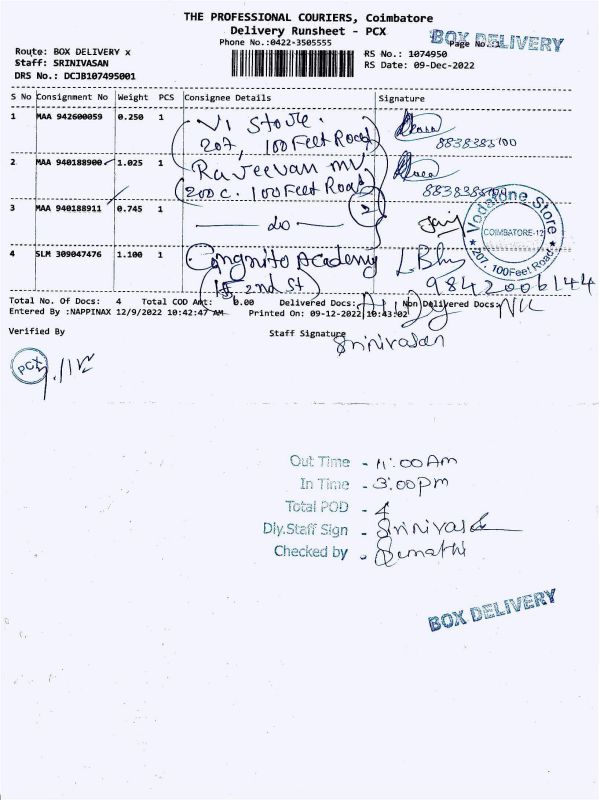 THE PROFESSIONAL COURIERS, Coimbatore
Delivery Runsheet - PCX
Phone No.:0422-3505555
BOX DELIVERY
Page No.:1
Route: BOX DELIVERY x
Staff: SRINIVASAN
DRS No.: DCJB107495001
RS No.: 1074950
RS Date: 09-Dec-2022
S No Consignment No Weight PCS Consignee Details Signature
1 MAA 942600059 0.250 1 VI Store.
207, 100 Feet Road
8838383100
2 MAA 940188900 1.025 1 Rajeevan mv
200 C. 100 Feet Road
88383831
3 MAA 940188911 0.745 1 do
Vodafone Store
COIMBATORE-12
207, 100Feet Road
4 SLM 309047476 1.100 1 Congnito Academy
2nd St
9842006144
Total No. Of Docs: 4 Total COD Amt: 0.00 Delivered Docs: All Non Delivered Docs: Nil
Entered By :NAPPINAX 12/9/2022 10:42:47 AM Printed On: 09-12-2022 10:43:02
Verified By Staff Signature
Srinivasan
PCX
9/12
Out Time - 11:00 Am
In Time - 3:00 pm
Total POD - 4
Dly.Staff Sign - Srinivasan
Checked by - Sumathi
BOX DELIVERY